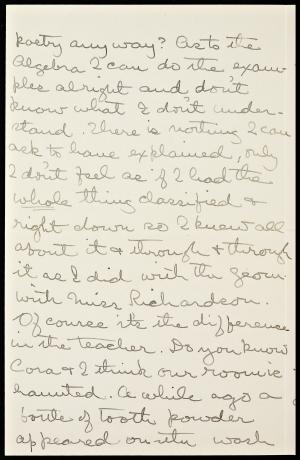 poetry anyway? As to the
Algebra I can do the exam-
ples alright and don't
know what I don't under-
stand. There is nothing I can
ask to have explained, only
I don't feel as if I had the
whole thing classified &
right down so I knew all
about it & through & through
it as I did with the Geom.
with Miss Richardson.
Of course its the difference
in the teacher. Do you know
Cora & I think our room is
haunted. A while ago a
bottle of tooth powder
appeared on the wash